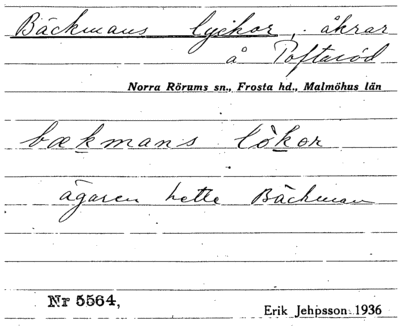 Bäckmans lyckor, åkrar
å Toftaröd
Norra Rörums sn., Frosta hd., Malmöhus län
bækmans lȯkor
ägaren hette Bäckman
Nr 5564,
Erik Jehpsson 1936